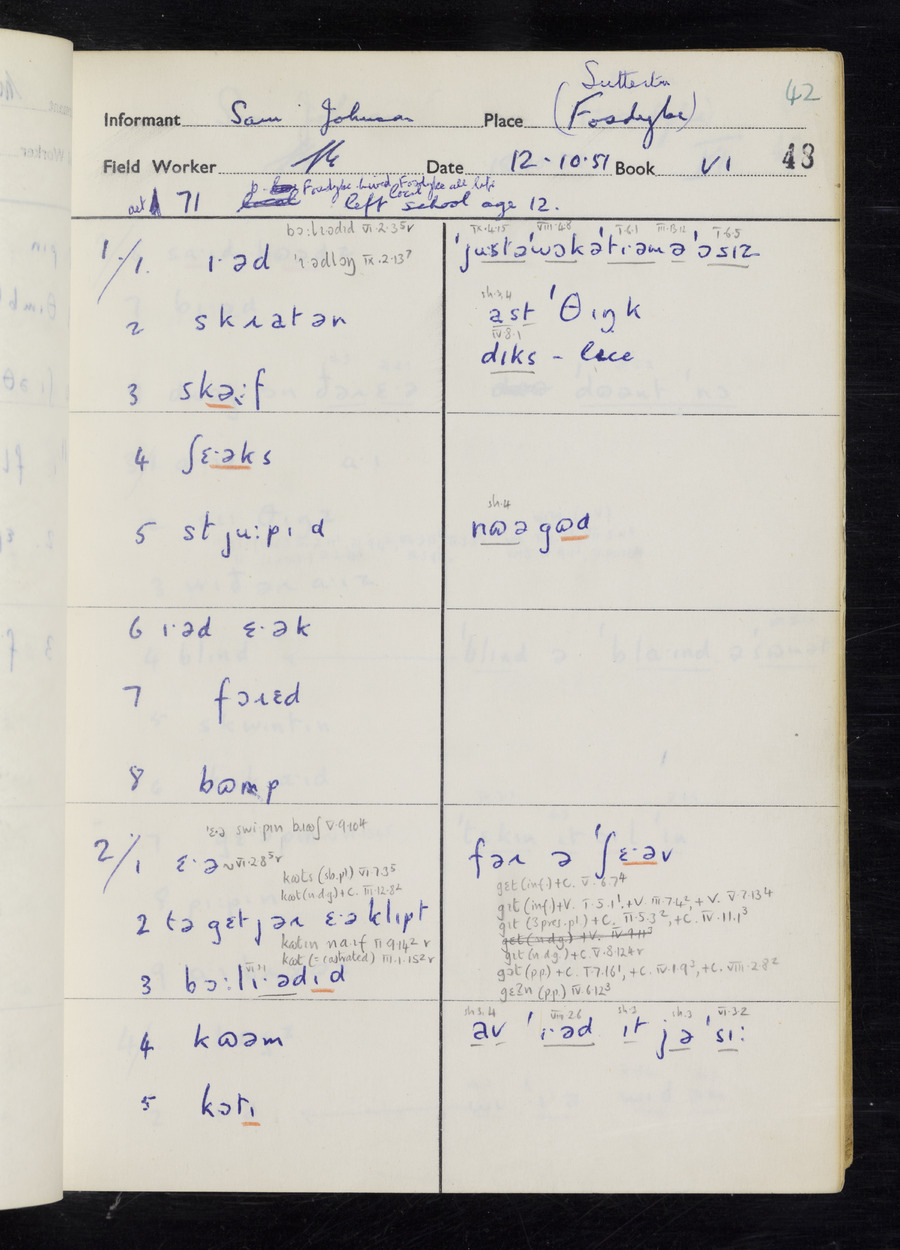 42
Sutterton
Informant Sam Johnson Place (Fosdyke)
Field Worker Date 12.10.51 Book VI 43
aet 71 left school age 12.
bɔ:lɹədid VI.2.3⁵r
1/1. ɪ·əd ˈɹədləŋ IX.2.13⁷
2 skɹatən
3 skə:f
4 ʃɛ·əks
5 stju:pɪd
6 ɪ·əd ɛ·ək
7 fɔɹɛd
8 bɷmp
ˈɛ·ə swi·pɪn bɹɷʃ V.9.10⁴
2/1 ɛ·ə ~ VI.2.8⁵r
kɷts (sb.pl) VI.7.3⁵
kɷt (n.dg)+C. III.12.8²
2 tə gɛt jəɹ ɛ·ə klɪpt
kɷtɪn naɪf III.9.14² r
kɷt (=castrated) III.1.15² r
3 bɔ:lɪ·ədɪd
4 kɷəm
5 kɔtɪ
IX.4.15 VIII.4.8 I.6.1 III.13.12 I.6.5
ˈjustəˈwəkəˈtɪəm əˈɔsɪz
sh.3,4
ast ˈθɪŋk
IV.8.1
dɪks – lice
sh.4
nɷə gɷd
fəɹ ə ˈʃɛ·əv
gɛt (inf.)+C. V.6.7⁴
gɪt (inf)+V. I.5.1¹, +V III.7.4², +V. V.7.13⁴
gɪt (3 pres.pl)+C. II.5.3², +C. IV.11.1³
gɛt (n.dg)+V. IV.9.11³
gɪt (n.dg)+C. V.8.12⁴r
gɔt (pp)+C. I.7.16¹, +C. IV.1.9³, +C. VIII.2.8²
gɛʔn (pp.) IV.6.12³
sh.3,4 VIII.2.6 sh.3 sh.3 VI.3.2
av ˈɪ·əd ɪt jəˈsɪ: